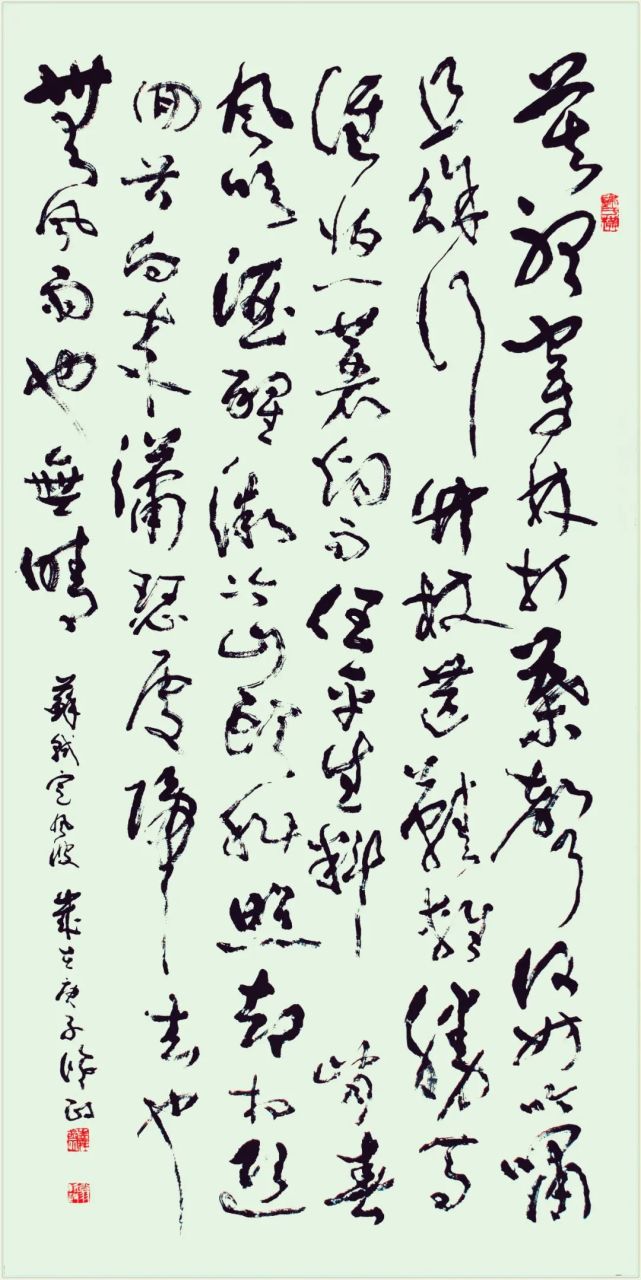 莫聽穿林打葉聲何妨吟嘯
且徐行竹杖芒鞋輕勝馬
誰怕一蓑烟雨任平生料峭春
風吹酒醒微冷山頭斜照却相迎
回首向來瀟瑟處歸去也
無風雨也無晴
蘇軾定風波歲在庚子